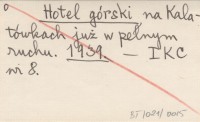 Hotel górski na Kala-
tówkach już w pełnym
ruchu. 1939. — IKC
nr 8.